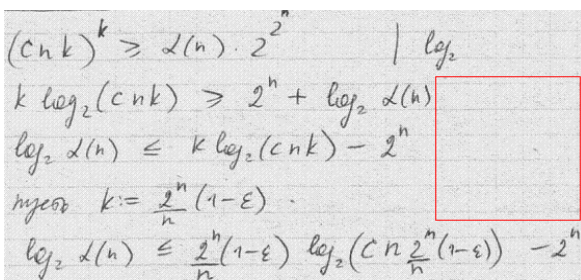 (cnk)^k ⩾ α(n) · 2^{2^n} | log₂
k log₂(cnk) ⩾ 2^n + log₂ α(n)
log₂ α(n) ≤ k log₂(cnk) − 2^n
пусть k := 2^n/n (1−ε).
log₂ α(n) ≤ 2^n/n (1−ε) log₂(cn 2^n/n (1−ε)) − 2^n